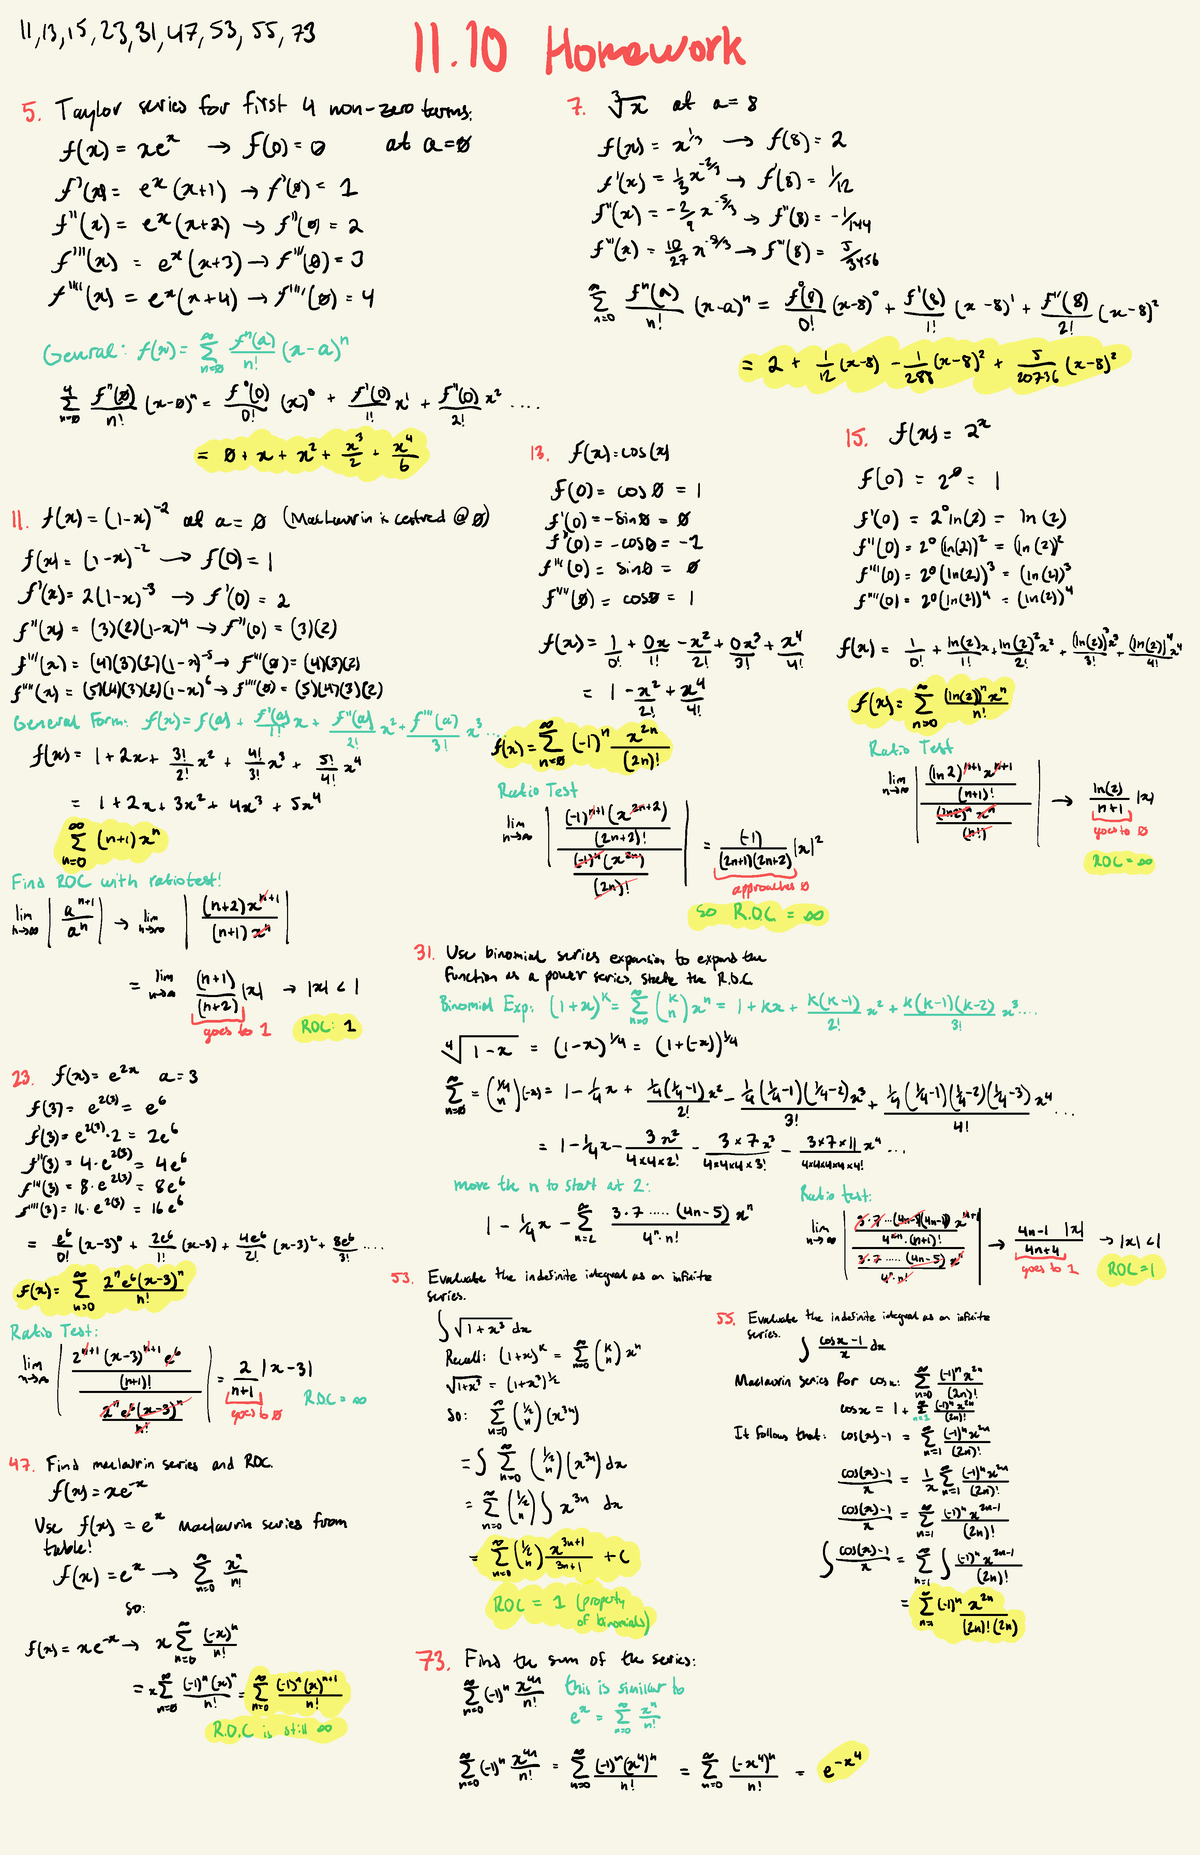 11, 13, 15, 23, 31, 47, 53, 55, 73
11.10 Homework
5. Taylor series for first 4 non-zero terms.
f(x) = xe^x → f(0) = 0 at a=0
f'(x) = e^x (x+1) → f'(0) = 1
f''(x) = e^x (x+2) → f''(0) = 2
f'''(x) = e^x (x+3) → f'''(0) = 3
f''''(x) = e^x (x+4) → f''''(0) = 4
General: f(x) = Σ_{n=0}^∞ f^n(a)/n! (x-a)^n
Σ_{n=0}^4 f^n(0)/n! (x-0)^n = f^0(0)/0! (x)^0 + f'(0)/1! x^1 + f''(0)/2! x^2 ....
= 0 + x + x^2 + x^3/2 + x^4/6
7. ∛x at a = 8
f(x) = x^{1/3} → f(8) = 2
f'(x) = 1/3 x^{-2/3} → f'(8) = 1/12
f''(x) = -2/9 x^{-5/3} → f''(8) = -1/144
f'''(x) = 10/27 x^{-8/3} → f'''(8) = 5/3456
Σ_{n=0}^∞ f^n(a)/n! (x-a)^n = f^0(8)/0! (x-8)^0 + f'(8)/1! (x-8)^1 + f''(8)/2! (x-8)^2
= 2 + 1/12 (x-8) - 1/288 (x-8)^2 + 5/20736 (x-8)^2
11. f(x) = (1-x)^{-2} at a = 0 (Maclaurin is centred @ 0)
f(x) = (1-x)^{-2} → f(0) = 1
f'(x) = 2(1-x)^{-3} → f'(0) = 2
f''(x) = (3)(2)(1-x)^4 → f''(0) = (3)(2)
f'''(x) = (4)(3)(2)(1-x)^{-5} → f'''(0) = (4)(3)(2)
f''''(x) = (5)(4)(3)(2)(1-x)^6 → f''''(0) = (5)(4)(3)(2)
General Form: f(x) = f(a) + f'(a)/1! x + f''(a)/2! x^2 + f'''(a)/3! x^3 ....
f(x) = 1 + 2x + 3!/2! x^2 + 4!/3! x^3 + 5!/4! x^4
= 1 + 2x + 3x^2 + 4x^3 + 5x^4
Σ_{n=0}^∞ (n+1)x^n
Find ROC with ratio test!
lim_{n→∞} | a^{n+1}/a^n | → lim_{n→∞} | (n+2)x^{n+1} / (n+1)x^n |
= lim_{n→∞} (n+1)/(n+2) |x| → |x| < 1
goes to 1 ROC: 1
13. f(x) = cos(x)
f(0) = cos 0 = 1
f'(0) = -sin 0 = 0
f''(0) = -cos 0 = -1
f'''(0) = sin 0 = 0
f''''(0) = cos 0 = 1
f(x) = 1/0! + 0x/1! - x^2/2! + 0x^3/3! + x^4/4!
= 1 - x^2/2! + x^4/4!
f(x) = Σ_{n=0}^∞ (-1)^n x^{2n}/(2n)!
Ratio Test
lim_{n→∞} | (-1)^{n+1}(x^{2n+2})/(2n+2)! / (-1)^n(x^{2n})/(2n)! | = (-1)/(2n+1)(2n+2) |x|^2
approaches 0
so R.O.C = ∞
15. f(x) = 2^x
f(0) = 2^0 = 1
f'(0) = 2^0 ln(2) = ln(2)
f''(0) = 2^0 (ln(2))^2 = (ln(2))^2
f'''(0) = 2^0 (ln(2))^3 = (ln(2))^3
f''''(0) = 2^0 (ln(2))^4 = (ln(2))^4
f(x) = 1/0! + ln(2)x/1! + ln(2)^2 x^2/2! + (ln(2))^3 x^3/3! + (ln(2))^4 x^4/4!
f(x) = Σ_{n=0}^∞ (ln(2))^n x^n/n!
Ratio Test
lim_{n→∞} | (ln 2)^{n+1} x^{n+1}/(n+1)! / (ln 2)^n x^n/(n!) | → ln(2)/(n+1) |x|
goes to 0
ROC = ∞
23. f(x) = e^{2x} a = 3
f(3) = e^{2(3)} = e^6
f'(3) = e^{2(3)}·2 = 2e^6
f''(3) = 4·e^{2(3)} = 4e^6
f'''(3) = 8·e^{2(3)} = 8e^6
f''''(3) = 16·e^{2(3)} = 16e^6
= e^6/0! (x-3)^0 + 2e^6/1! (x-3) + 4e^6/2! (x-3)^2 + 8e^6/3! ....
f(x) = Σ_{n=0}^∞ 2^n e^6 (x-3)^n/n!
Ratio Test:
lim_{n→∞} | 2^{n+1}(x-3)^{n+1} e^6/(n+1)! / 2^n e^6 (x-3)^n/n! | = 2/(n+1) |x-3|
goes to 0 R.O.C = ∞
31. Use binomial series expansion to expand the
function as a power series, state the R.O.C
Binomial Exp: (1+x)^k = Σ_{n=0}^∞ (k n) x^n = 1 + kx + k(k-1)/2! x^2 + k(k-1)(k-2)/3! x^3 ....
∜(1-x) = (1-x)^{1/4} = (1+(-x))^{1/4}
Σ_{n=0}^∞ = (1/4 n)(-x) = 1 - 1/4 x + 1/4(1/4-1)/2! x^2 - 1/4(1/4-1)(1/4-2)/3! x^3 + 1/4(1/4-1)(1/4-2)(1/4-3)/4! x^4 ...
= 1 - 1/4 x - 3x^2/(4×4×2!) - 3×7x^3/(4×4×4×3!) - 3×7×11x^4/(4×4×4×4×4!) ...
move the n to start at 2:
1 - 1/4 x - Σ_{n=2}^∞ 3·7.....(4n-5)/(4^n·n!) x^n
Ratio test:
lim_{n→∞} | 3·7...(4n-5)(4n-1) x^{n+1}/4^{n+1}·(n+1)! / 3·7.....(4n-5) x^n/4^n·n! | → (4n-1)/(4n+4) |x| → |x| < 1
goes to 1 ROC = 1
47. Find maclaurin series and ROC.
f(x) = xe^{-x}
Use f(x) = e^x Maclaurin series from
table!
f(x) = e^x → Σ_{n=0}^∞ x^n/n!
so:
f(x) = xe^{-x} → x Σ_{n=0}^∞ (-x)^n/n!
= x Σ_{n=0}^∞ (-1)^n (x)^n/n! = Σ_{n=0}^∞ (-1)^n (x)^{n+1}/n!
R.O.C is still ∞
53. Evaluate the indefinite integral as an infinite
series.
∫ √(1+x^3) dx
Recall: (1+x)^k = Σ_{n=0}^∞ (k n) x^n
√(1+x^3) = (1+x^3)^{1/2}
So: Σ_{n=0}^∞ (1/2 n)(x^{3n})
= ∫ Σ_{n=0}^∞ (1/2 n)(x^{3n}) dx
= Σ_{n=0}^∞ (1/2 n) ∫ x^{3n} dx
= Σ_{n=0}^∞ (1/2 n) x^{3n+1}/(3n+1) + C
ROC = 1 (property
of binomials)
55. Evaluate the indefinite integral as an infinite
series.
∫ (cosx-1)/x dx
Maclaurin series for cosx: Σ_{n=0}^∞ (-1)^n x^{2n}/(2n)!
cosx = 1 + Σ_{n=1}^∞ (-1)^n x^{2n}/(2n)!
It follows that: cos(x)-1 = Σ_{n=1}^∞ (-1)^n x^{2n}/(2n)!
(cos(x)-1)/x = 1/x Σ_{n=1}^∞ (-1)^n x^{2n}/(2n)!
(cos(x)-1)/x = Σ_{n=1}^∞ (-1)^n x^{2n-1}/(2n)!
∫ (cos(x)-1)/x = Σ_{n=1}^∞ ∫ (-1)^n x^{2n-1}/(2n)!
= Σ_{n=1}^∞ (-1)^n x^{2n}/(2n)!(2n)
73. Find the sum of the series:
Σ_{n=0}^∞ (-1)^n x^{4n}/n! this is similar to
e^x = Σ_{n=0}^∞ x^n/n!
Σ_{n=0}^∞ (-1)^n x^{4n}/n! = Σ_{n=0}^∞ (-1)^n (x^4)^n/n! = Σ_{n=0}^∞ (-x^4)^n/n! = e^{-x^4}